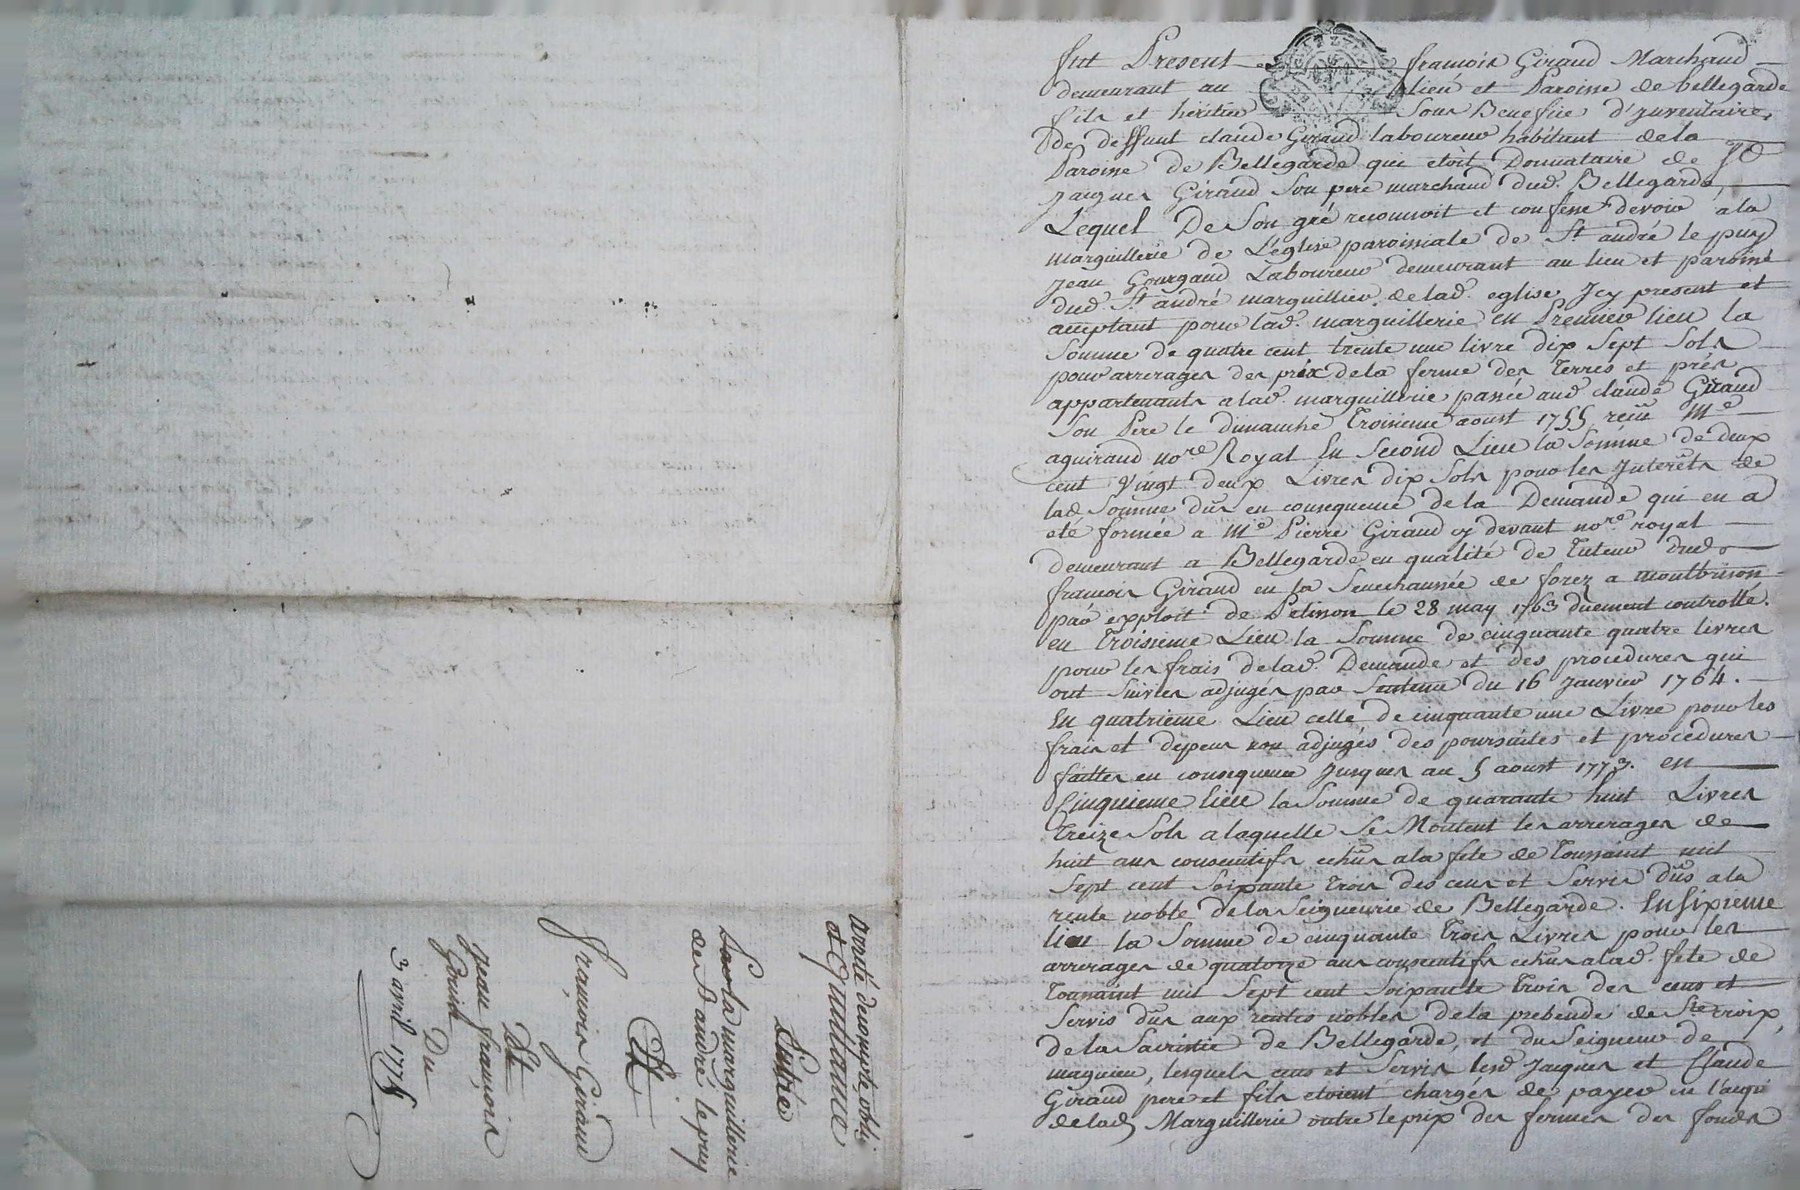 arreté decompte obli
et Quittance
Entre
La marguillerie
de St andré le puy
Et
françois Giraud
Et
jean françois
Goind
Du
3 avril 1775
fut Present françois Giraud Marchand
demeurant au lieu et Paroisse de bellegarde
fils et héritier Sous Benefice d'jnventaire,
de deffunt claude Giraud laboureur habitant de la
Paroisse de Bellegarde qui etoit Donnataire de
jacques Giraud Son pere marchand dud. Bellegarde,
Lequel De Son gré reconnoit et confesse devoir a la
marguillerie de L'église paroissiale de St andré le puy
jean Gourgaud Laboureur demeurant au lieu et paroisse
dud. St andré marguillier de lad. eglise jcy present et
acceptant pour lad. marguillerie en Premier lieu la
Somme de quatre cent trente une livre dix Sept Sols
pour arrerages des prix de la ferme des Terres et près
appartenants a lad. marguillerie passée aud. claude Giraud
Son Pere le dimanche Troisieme aoust 1755 reçu Me
aguiraud nore Royal En Second Lieu la Somme de deux
cent Vingt deux Livres dix Sols pour les Jnterêts de
lad Somme dûs en consequence de la Demande qui en a
été formée a Me Pierre Giraud cy devant nore royal
demeurant a Bellegarde en qualité de Tuteur dud.
françois Giraud en la Senechaussée de forez a montbrison
par exploit de Pelisson le 28 may 1763 duement controllé.
en Troisieme Lieu la Somme de cinquante quatre livres
pour les frais de lad. Demande et des procedures qui
ont Suivies adjugés par Sentence du 16 Janvier 1764.
En quatrieme Lieu celle de cinquante une Livre pour les
frais et depens non adjugés des poursuites et procedures
faittes en consequence jusques au 5 aoust 1773. en
Cinquieme Lieu la Somme de quarante huit Livres
Treize Sols a laquelle Se Montent les arrerages de
huit ans consecutifs echus a la fete de Toussaint mil
Sept cent Soixante Trois des cens et Servis dûs a la
rente noble de la Seigneurie de Bellegarde. En Sixieme
lieu la Somme de cinquante Trois Livres pour les
arrerages de quatorze ans consecutifs echus a lad. fete de
Toussaint mil Sept cent Soixante Trois des cens et
Servis dûs aux rentes nobles de la prebende de Ste croix,
de la Sacristie de Bellegarde, et du Seigneur de
magnieu, lesquels cens et Servis lesd. Jacques et Claude
Giraud pere et fils etoient chargés de payer en l'acquit
de lad. Marguillerie outre le prix des fermes des fonds